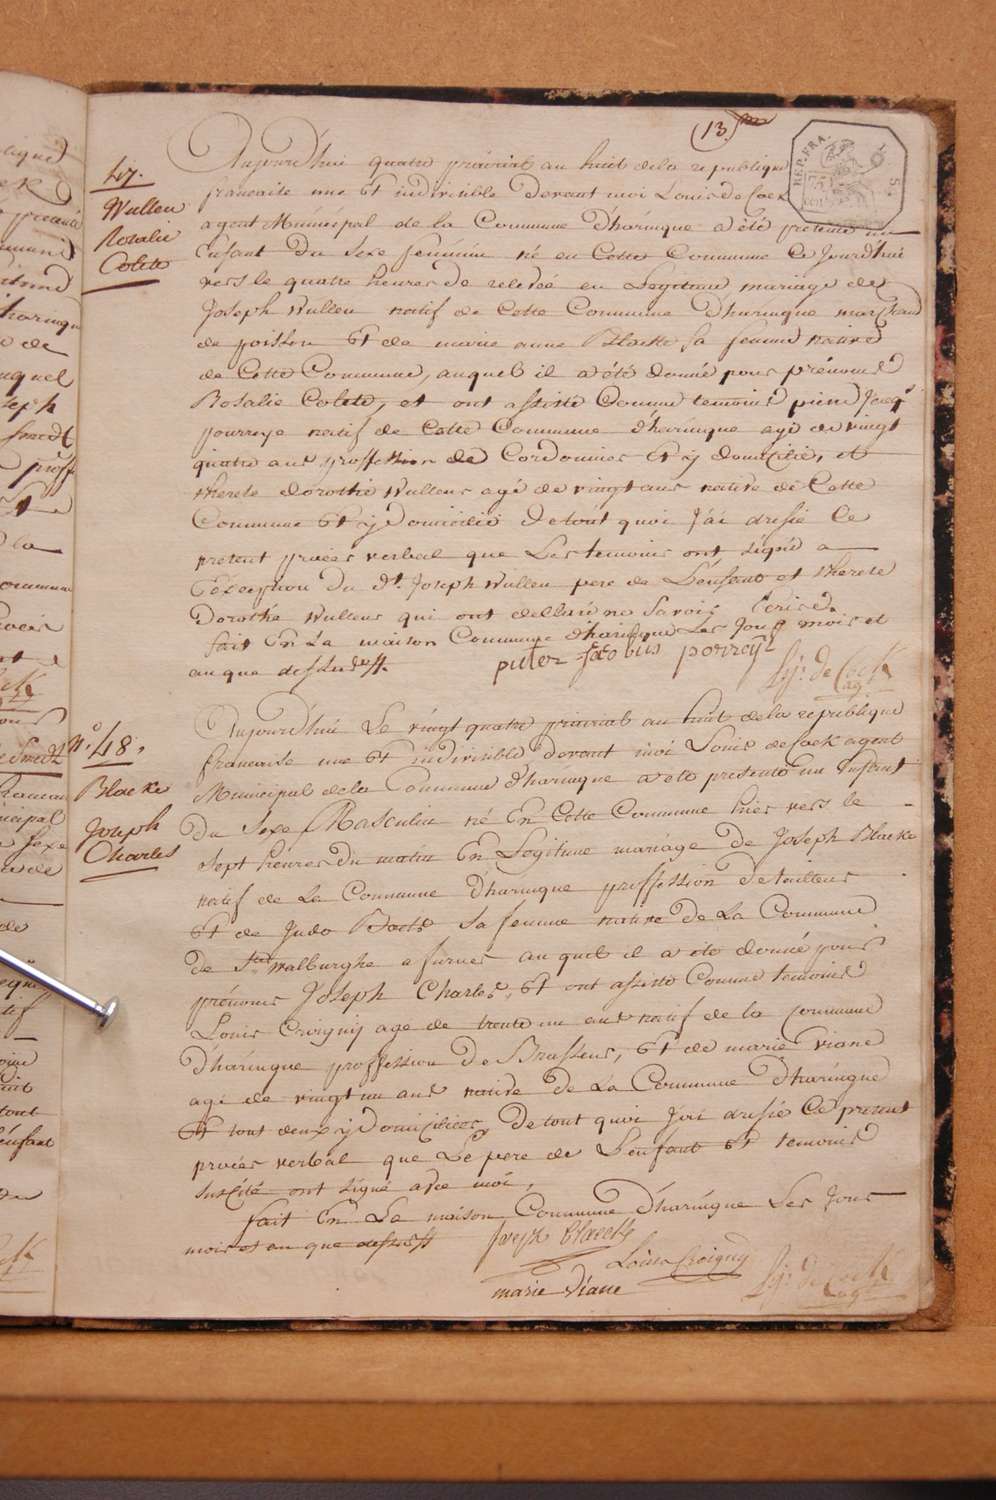 (13.)
REP. FRA.
47.
Wullen
Rosalie
Colete
Aujourd'hui quatre prairial an huit de la republique
francaise une et indivisible devant moi Louis de Cock
agent Municipal de la Commune d'haringue a été présenté un
Enfant Du Sexe feminin né en Cette Commune Ce Jourd'hui
vers le quatre heures de relevée en Legitime mariage de
Joseph Wullen natif de Cette Commune D'haringue marchand
de poisson et de marie anne Blaekke sa femme native
de Cette Commune, auquel il a été donné pour prénoms
Rosalie Colete, et ont assisté Comme temoins pierre Jacq.
pourroye natif de Cette Commune d'haringue agé de vingt
quatre ans proffession de Cordonnier et y domicilié, et
therese dorothé Wullens agé de vingt ans native de Cette
Commune et y Domicilié de tout quoi J'ai dressé Ce
present procès verbal que Les temoins ont signé a
L'éxception du dt. Joseph Wullen pere de L'enfant et therese
Dorothé Wullens qui ont declaré ne Savoir Ecrire
fait En La maison Commune d'haringue Les Jour mois et
an que dessus
pieter Jacobus porreye
Lj. de Cock
ag.
n.º 48.
Blaeke
Joseph
Charles
Aujourd'hui Le vingt quatre prairial an huit de la republique
francaise une et indivisible devant moi Louis de Cock agent
Municipal de la Commune d'haringue a été presenté un Enfant
Du Sexe Masculin né En Cette Commune hier vers le
sept heures du matin En Legitime mariage de Joseph Blaeke
natif de La Commune d'haringue proffession de tailleur
et de Judo sa femme native de La Commune
de Ste walburghe a furnes auquel il a été donné pour
prénoms Joseph Charles, et ont assisté Comme temoins
Louis Croigny age de trente un ans natif de la Commune
D'haringue proffession de Brasseur, et de marie viane
agé de vingt un ans native de La Commune d'haringue
et tout deux y Domiciliés de tout quoi J'ai dressé Ce present
procès verbal que Le pere de L'enfant et temoins
suscité ont signé avec moi,
fait En La maison Commune D'haringue Les Jour
mois et an que dessus
Joseph Blaeckke
Louis Croigny
marie viane
Lj. de Cock
ag.